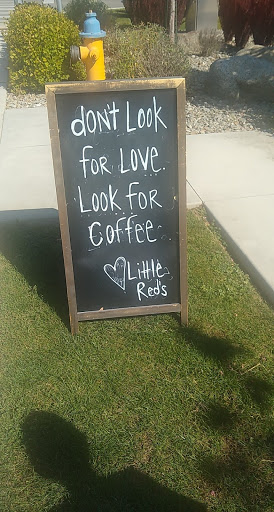 dON't LOOK
FOR LOVE.
LOOK FOR
COFFEE
Little
Red's